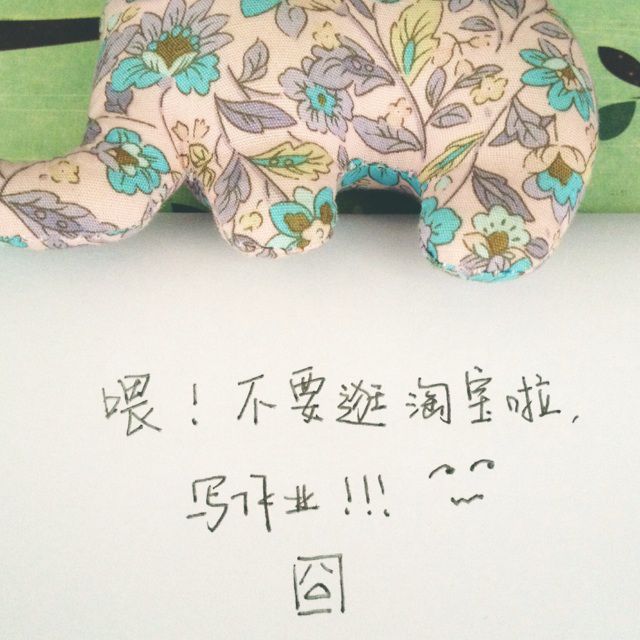 喂！不要逛淘宝啦，
写作业！！！
囧